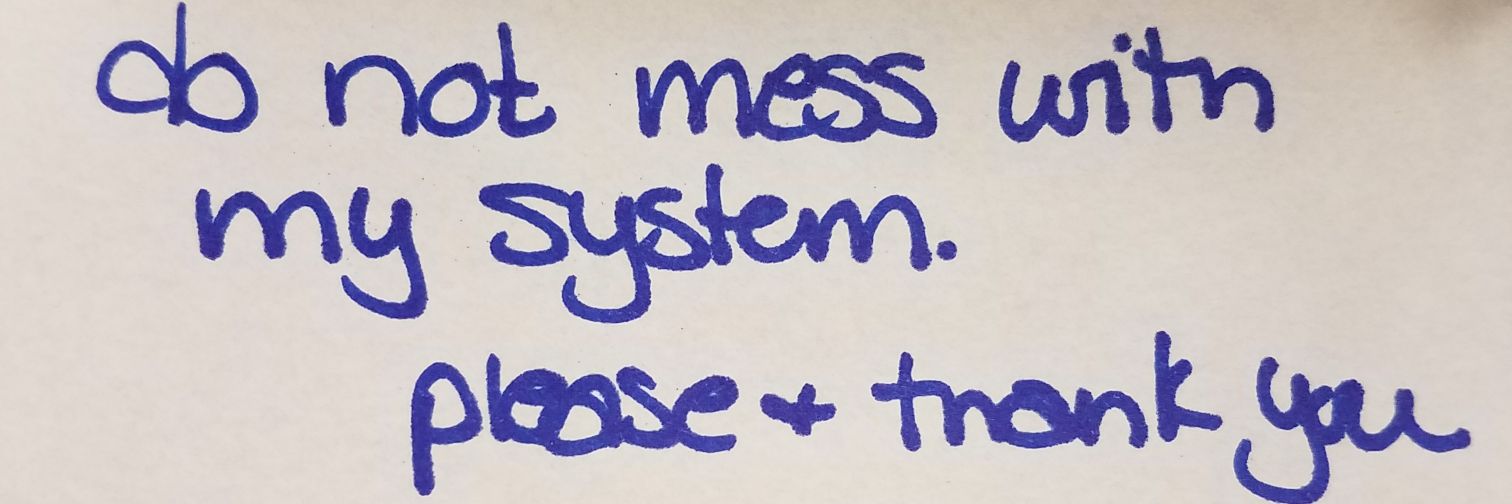 do not mess with
my system.
please + thank you